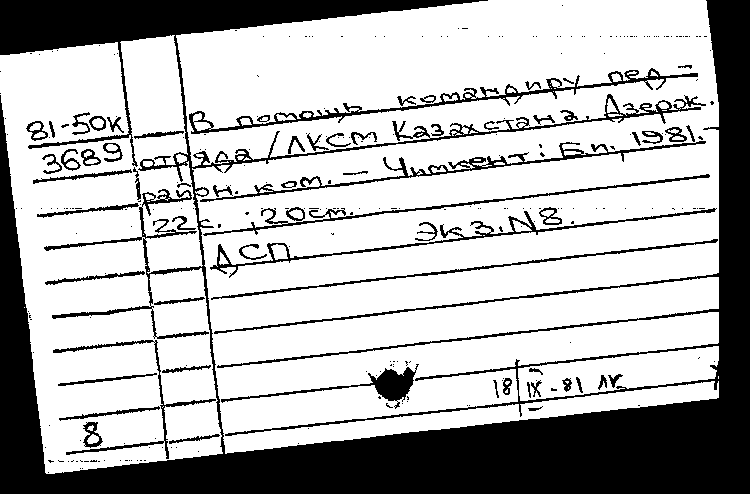 В помощь командиру пед-
81-50К
3689 отряда / ЛКСМ Казахстана. Дзерж.
район. ком. — Чимкент: Б.и., 1981. -
22 с. ; 20 см.
ДСП. Экз. N 8.
18 IX - 81
8